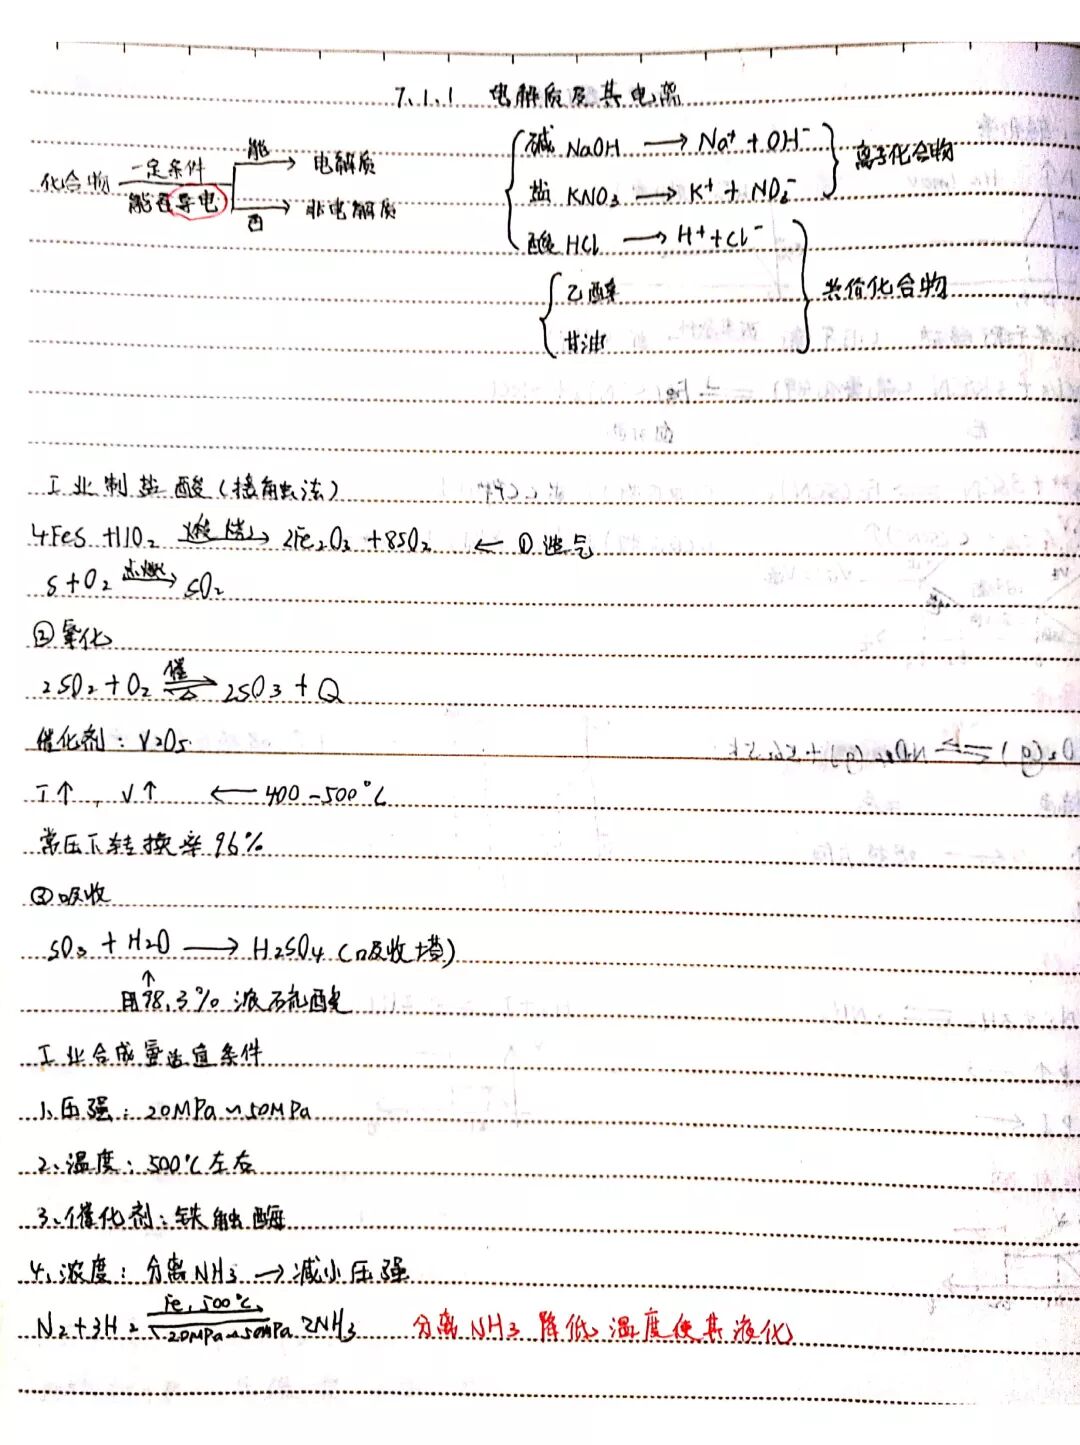 7.1.1 电解质及其电离
化合物 一定条件 能否导电
能 → 电解质
否 → 非电解质
碱 NaOH → Na⁺ + OH⁻
盐 KNO₃ → K⁺ + NO₃⁻
离子化合物
酸 HCl → H⁺ + Cl⁻
乙醇
甘油
共价化合物
工业制盐酸(接触法)
4FeS + 11O₂ 煅烧→ 2Fe₂O₃ + 8SO₂ ← ① 造气
S + O₂ 点燃→ SO₂
② 氧化
2SO₂ + O₂ 催 ⇌ △ 2SO₃ + Q
催化剂:V₂O₅
T↑, V↑ ← 400-500℃
常压下转换率96%
③ 吸收
SO₃ + H₂O → H₂SO₄(吸收塔)
↑
用98.3%浓硫酸
工业合成氨适宜条件
1、压强:20MPa~50MPa
2、温度:500℃左右
3、催化剂:铁触酶
4、浓度:分离NH₃ → 减小压强
N₂ + 3H₂ Fe, 500℃ ⇌ 20MPa~50MPa 2NH₃ 分离NH₃ 降低温度使其液化